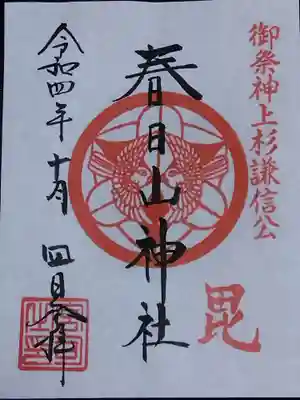 御祭神上杉謙信公
毘
春日山神社
令和四年十月四日参拝